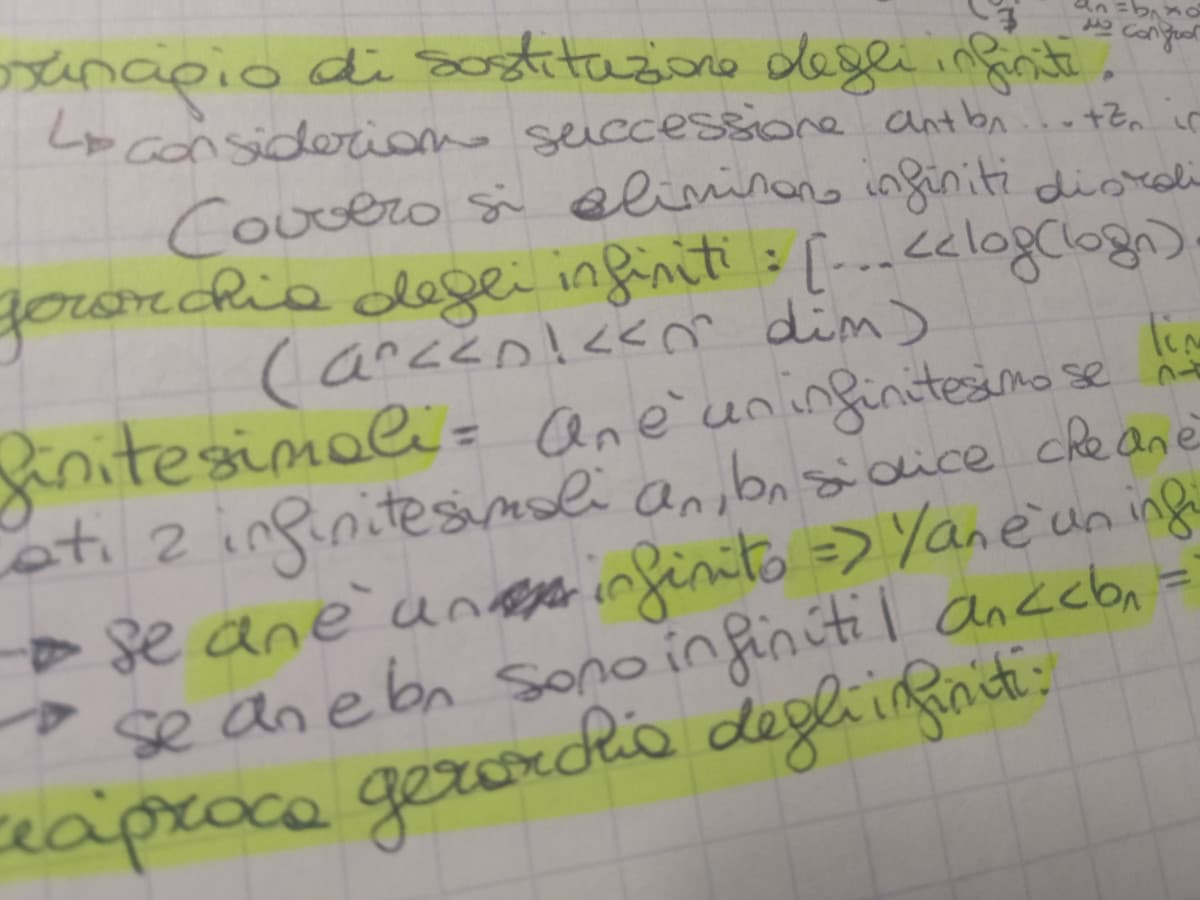 an = bn
principio di sostituzione degli infiniti.
↳ consideriamo successione an+bn...+zn in
(ovvero si eliminano infiniti di ordi
gerarchia degli infiniti: [...<<log(logn)
(aⁿ<<n!<<nⁿ dim)
finitesimali = an è un infinitesimo se lim
n→
ati 2 infinitesimali an, bn si dice che an è
→ se an è un infinito => 1/an è un infi
→ se an e bn sono infiniti | an<<bn =
reciproca gerarchia degli infiniti: